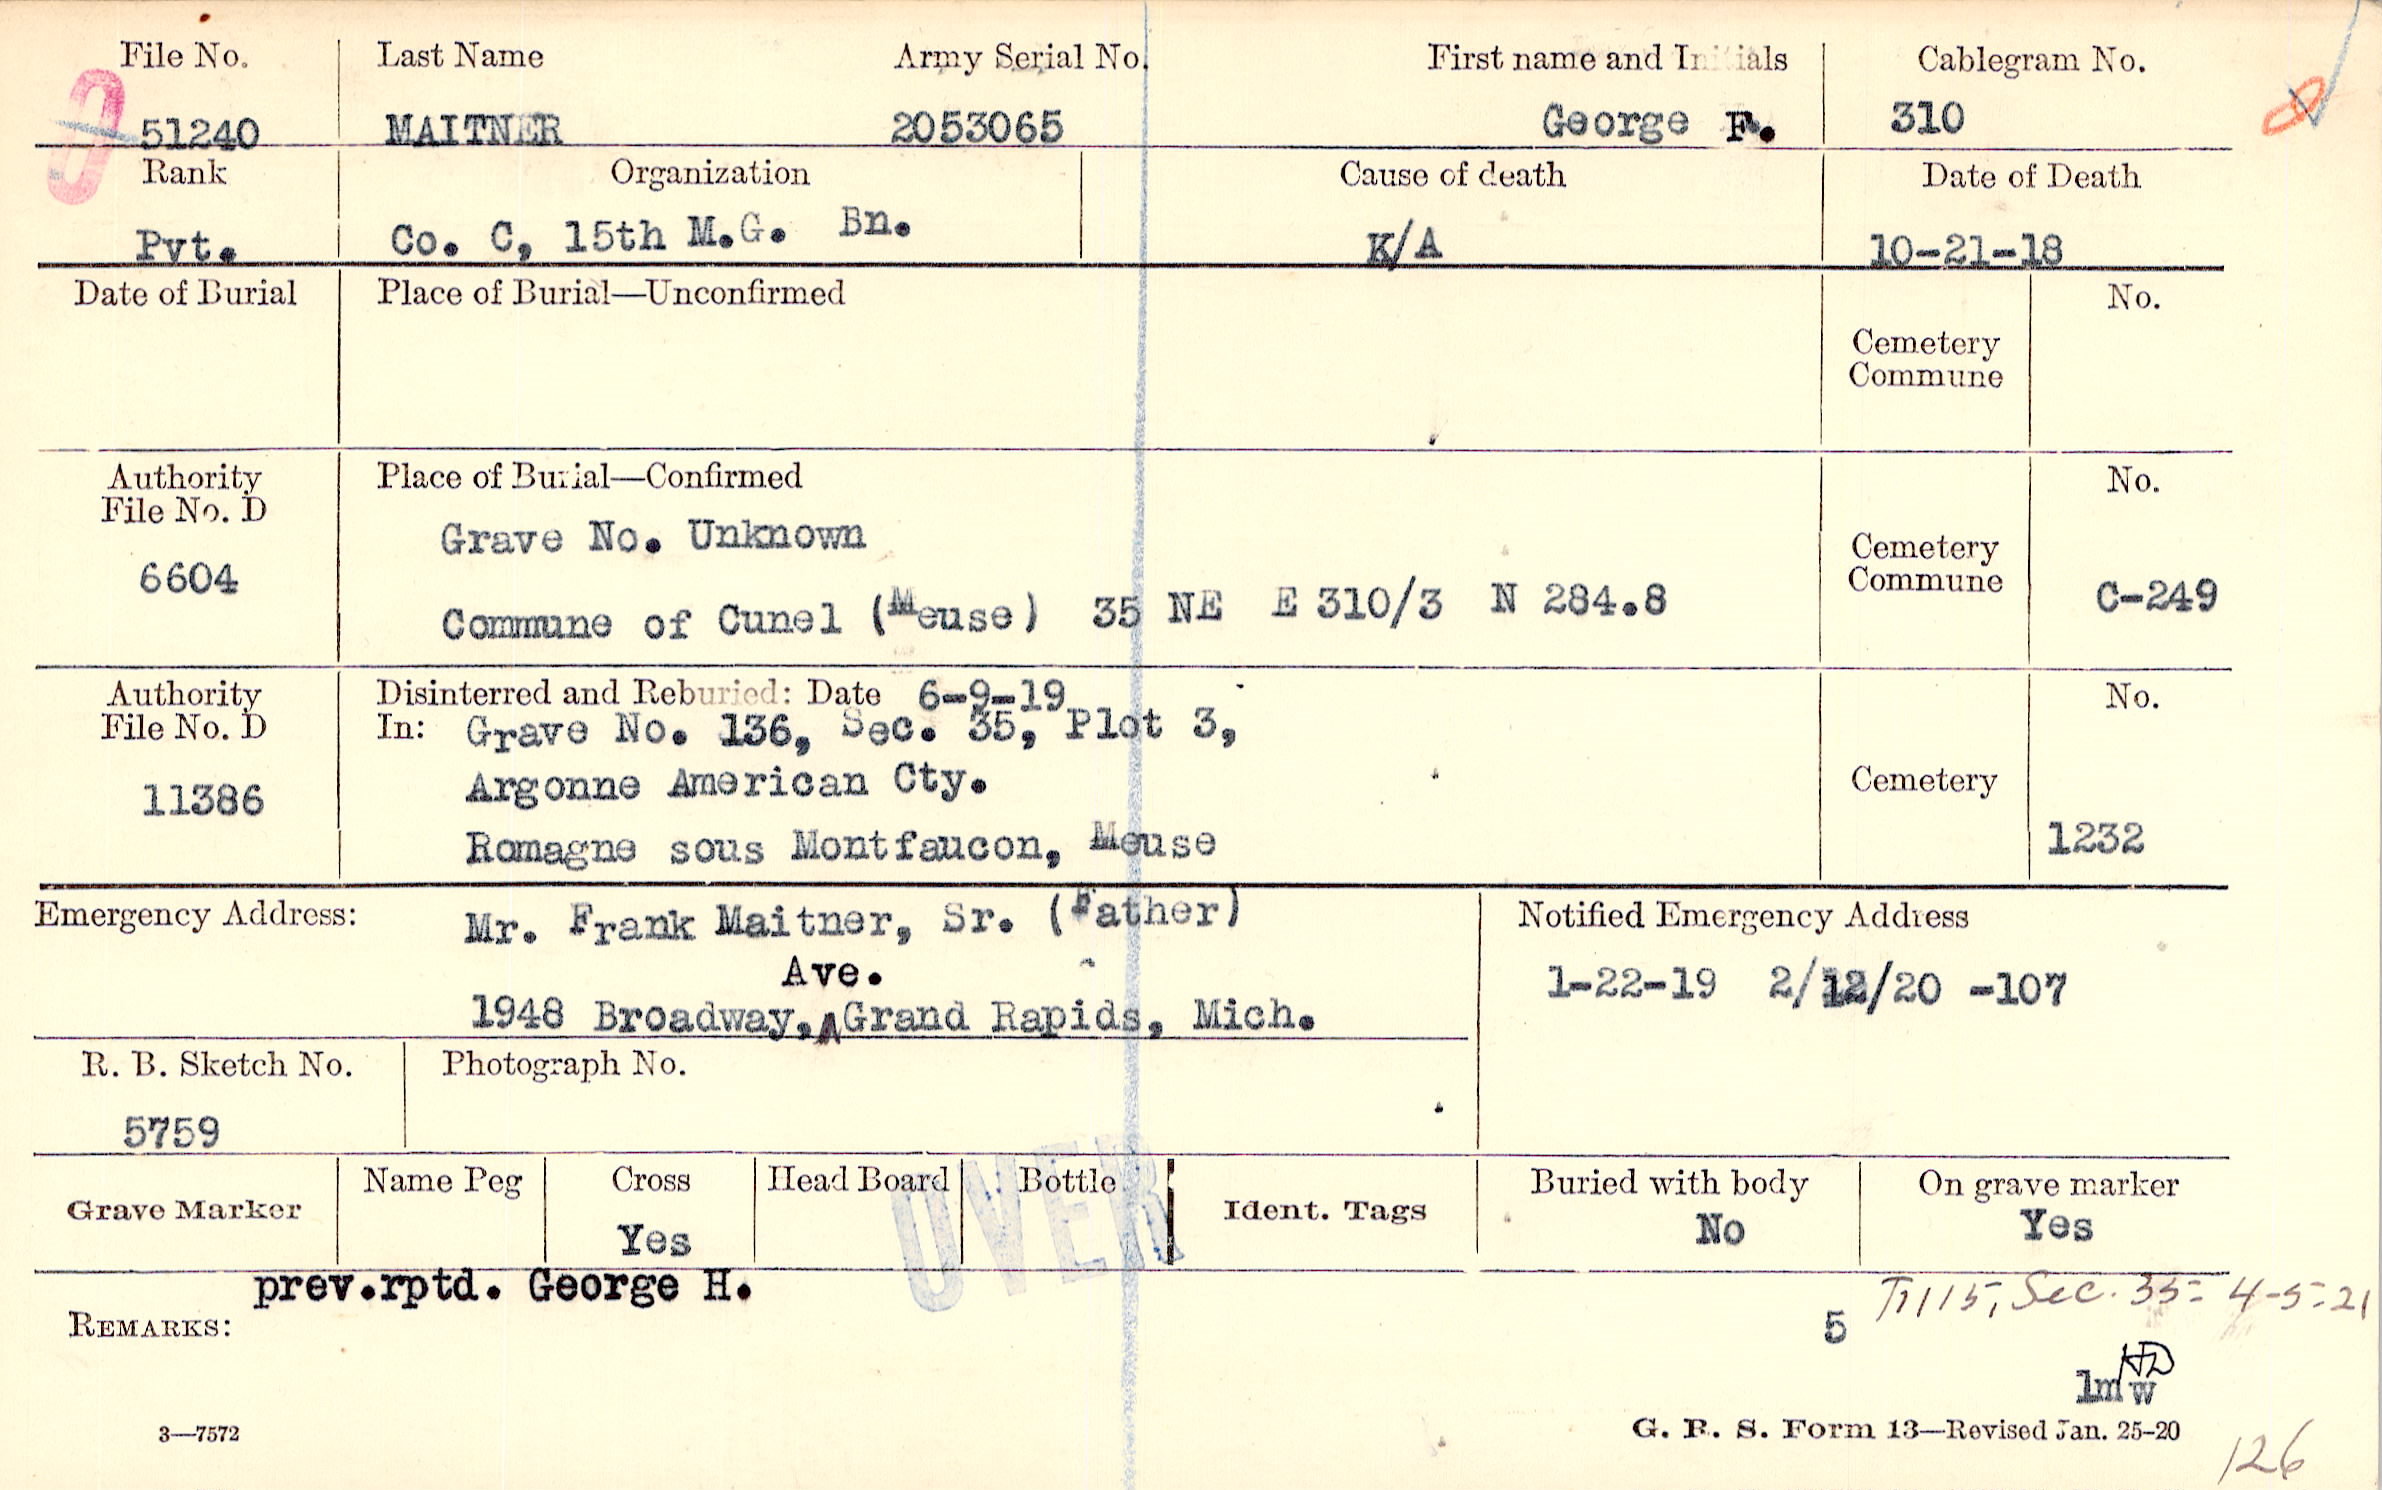 File No. Last Name Army Serial No. First name and Initials Cablegram No.
51240 MAITNER 2053065 George F. 310
Rank Organization Cause of death Date of Death
Pvt. Co. C, 15th M.G. Bn. K/A 10-21-18
Date of Burial Place of Burial—Unconfirmed No.
Cemetery
Commune
Authority Place of Burial—Confirmed No.
File No. D
Grave No. Unknown
6604 Cemetery
Commune of Cunel (Meuse) 35 NE E 310/3 N 284.8 Commune C-249
Authority Disinterred and Reburied: Date 6-9-19 No.
File No. D In: Grave No. 136, Sec. 35, Plot 3,
11386 Argonne American Cty. Cemetery
Romagne sous Montfaucon, Meuse 1232
Emergency Address: Mr. Frank Maitner, Sr. (Father) Notified Emergency Address
Ave. 1-22-19 2/12/20 -107
1948 Broadway, Grand Rapids, Mich.
R. B. Sketch No. Photograph No.
5759
Grave Marker Name Peg Cross Head Board Bottle Ident. Tags Buried with body On grave marker
Yes No Yes
OVER
prev.rptd. George H.
REMARKS: 5 Sec. 35- 4-5-21
HD
lmw
3—7572 G. R. S. Form 13—Revised Jan. 25-20
126